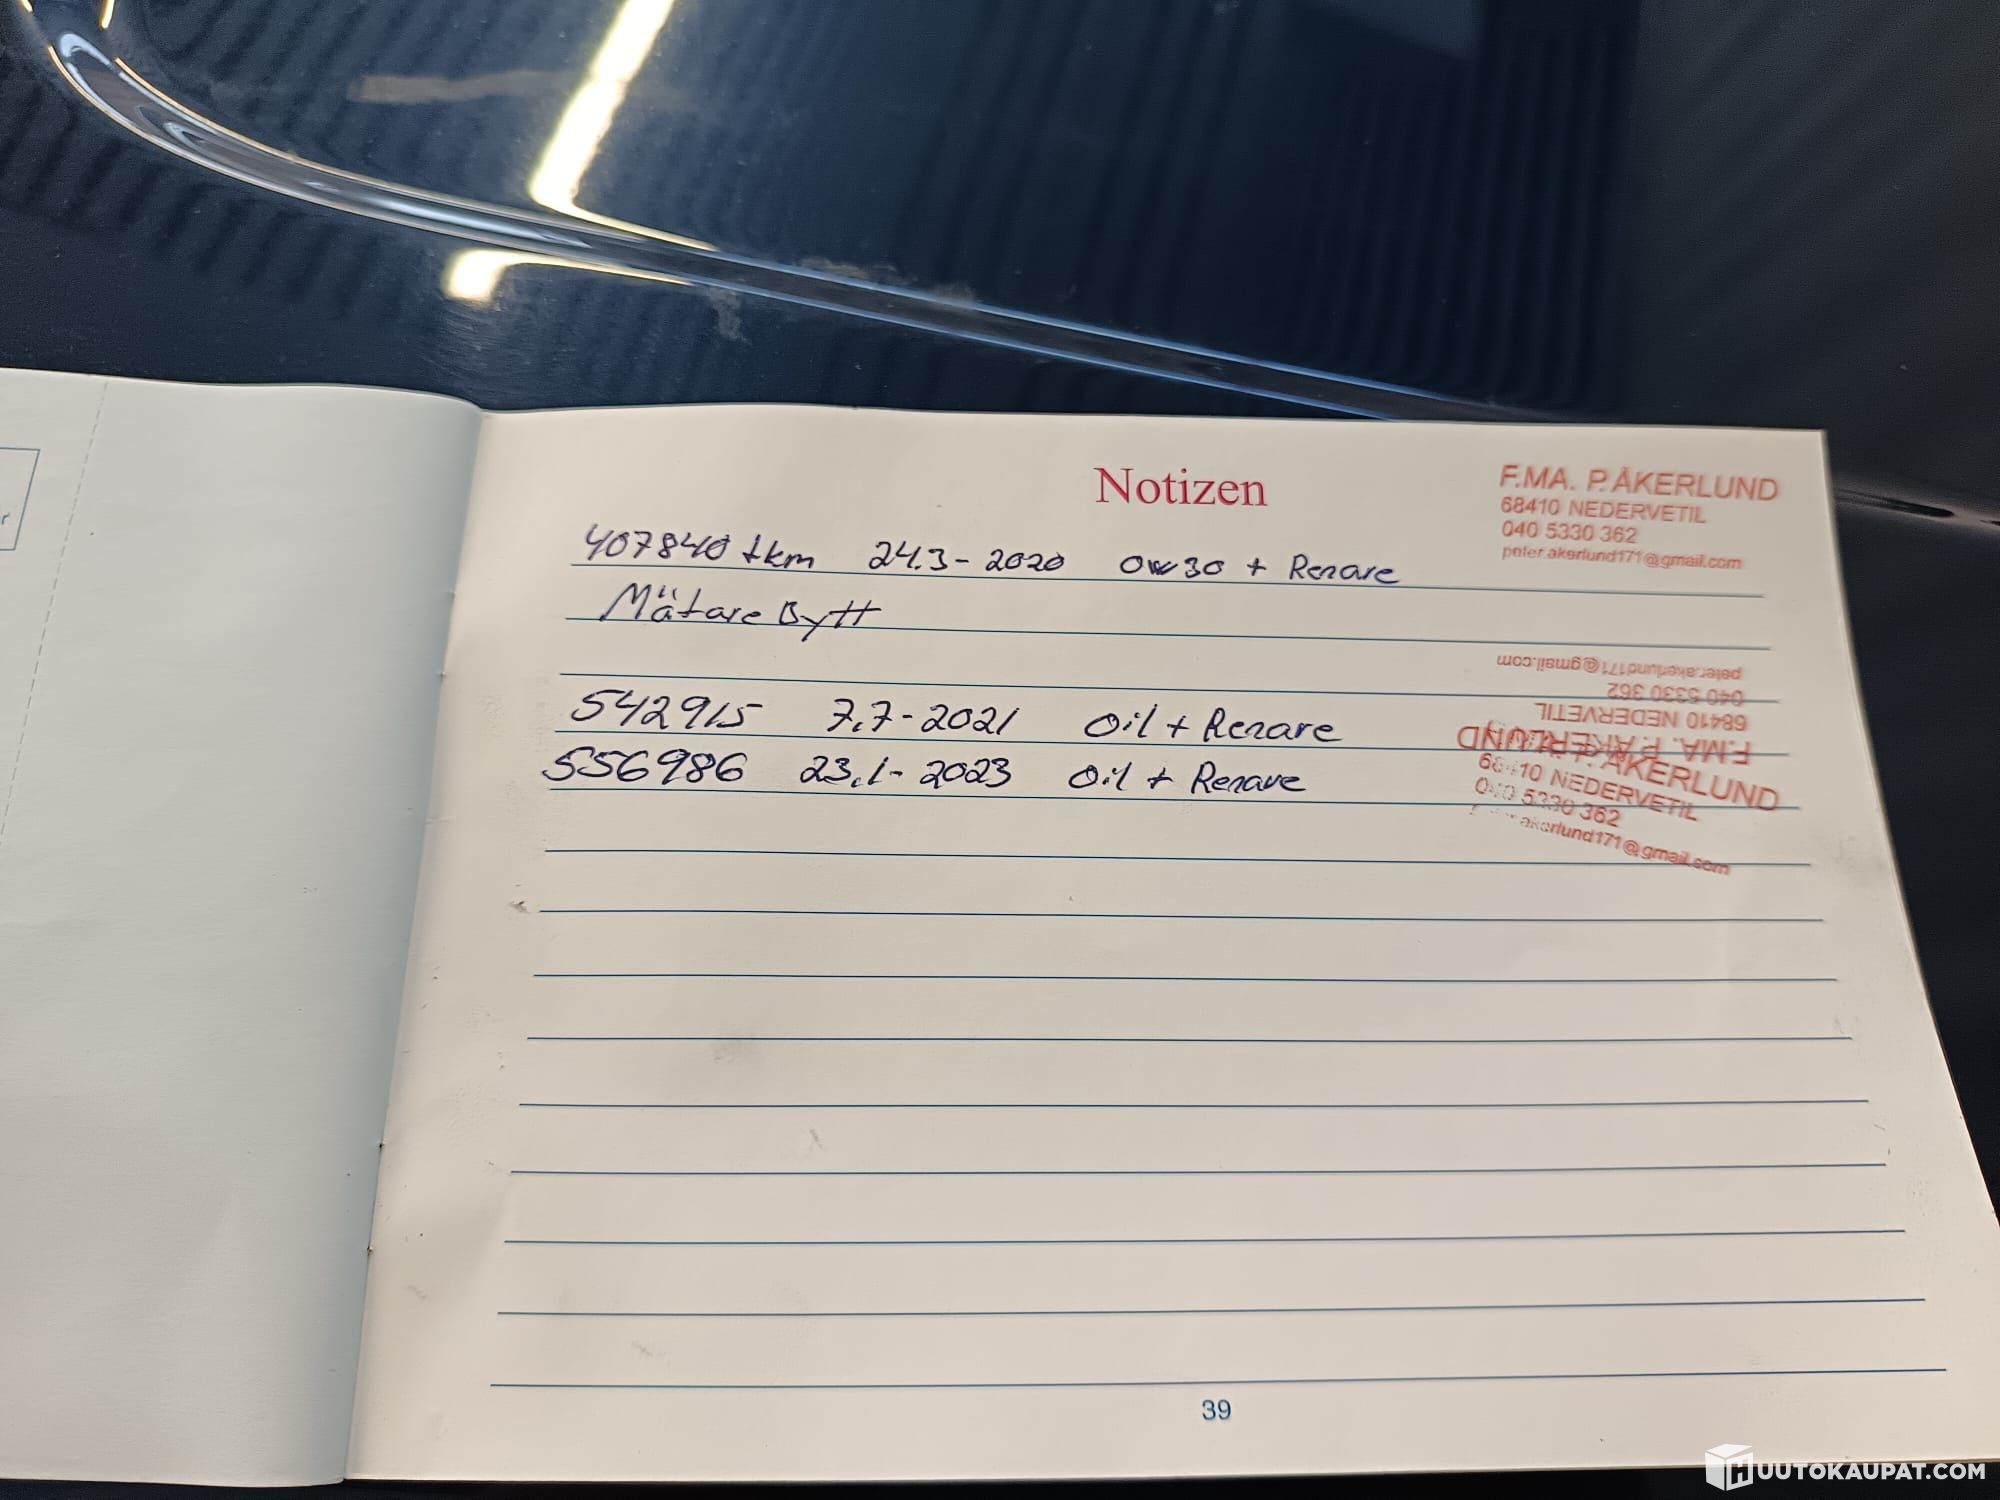 r
Notizen
F.MA. P. ÅKERLUND
68410 NEDERVETIL
040 5330 362
peter.akerlund171@gmail.com
407840 tkm 24.3-2020 0w30 + Renare
Mätare Bytt
peter.akerlund171@gmail.com
040 5330 362
68410 NEDERVETIL
F.MA. P. ÅKERLUND
542915 7.7-2021 Oil + Renare
556986 23.1-2023 Oil + Renare
ÅKERLUND
68410 NEDERVETIL
040 5330 362
akerlund171@gmail.com
39
HUUTOKAUPAT.COM